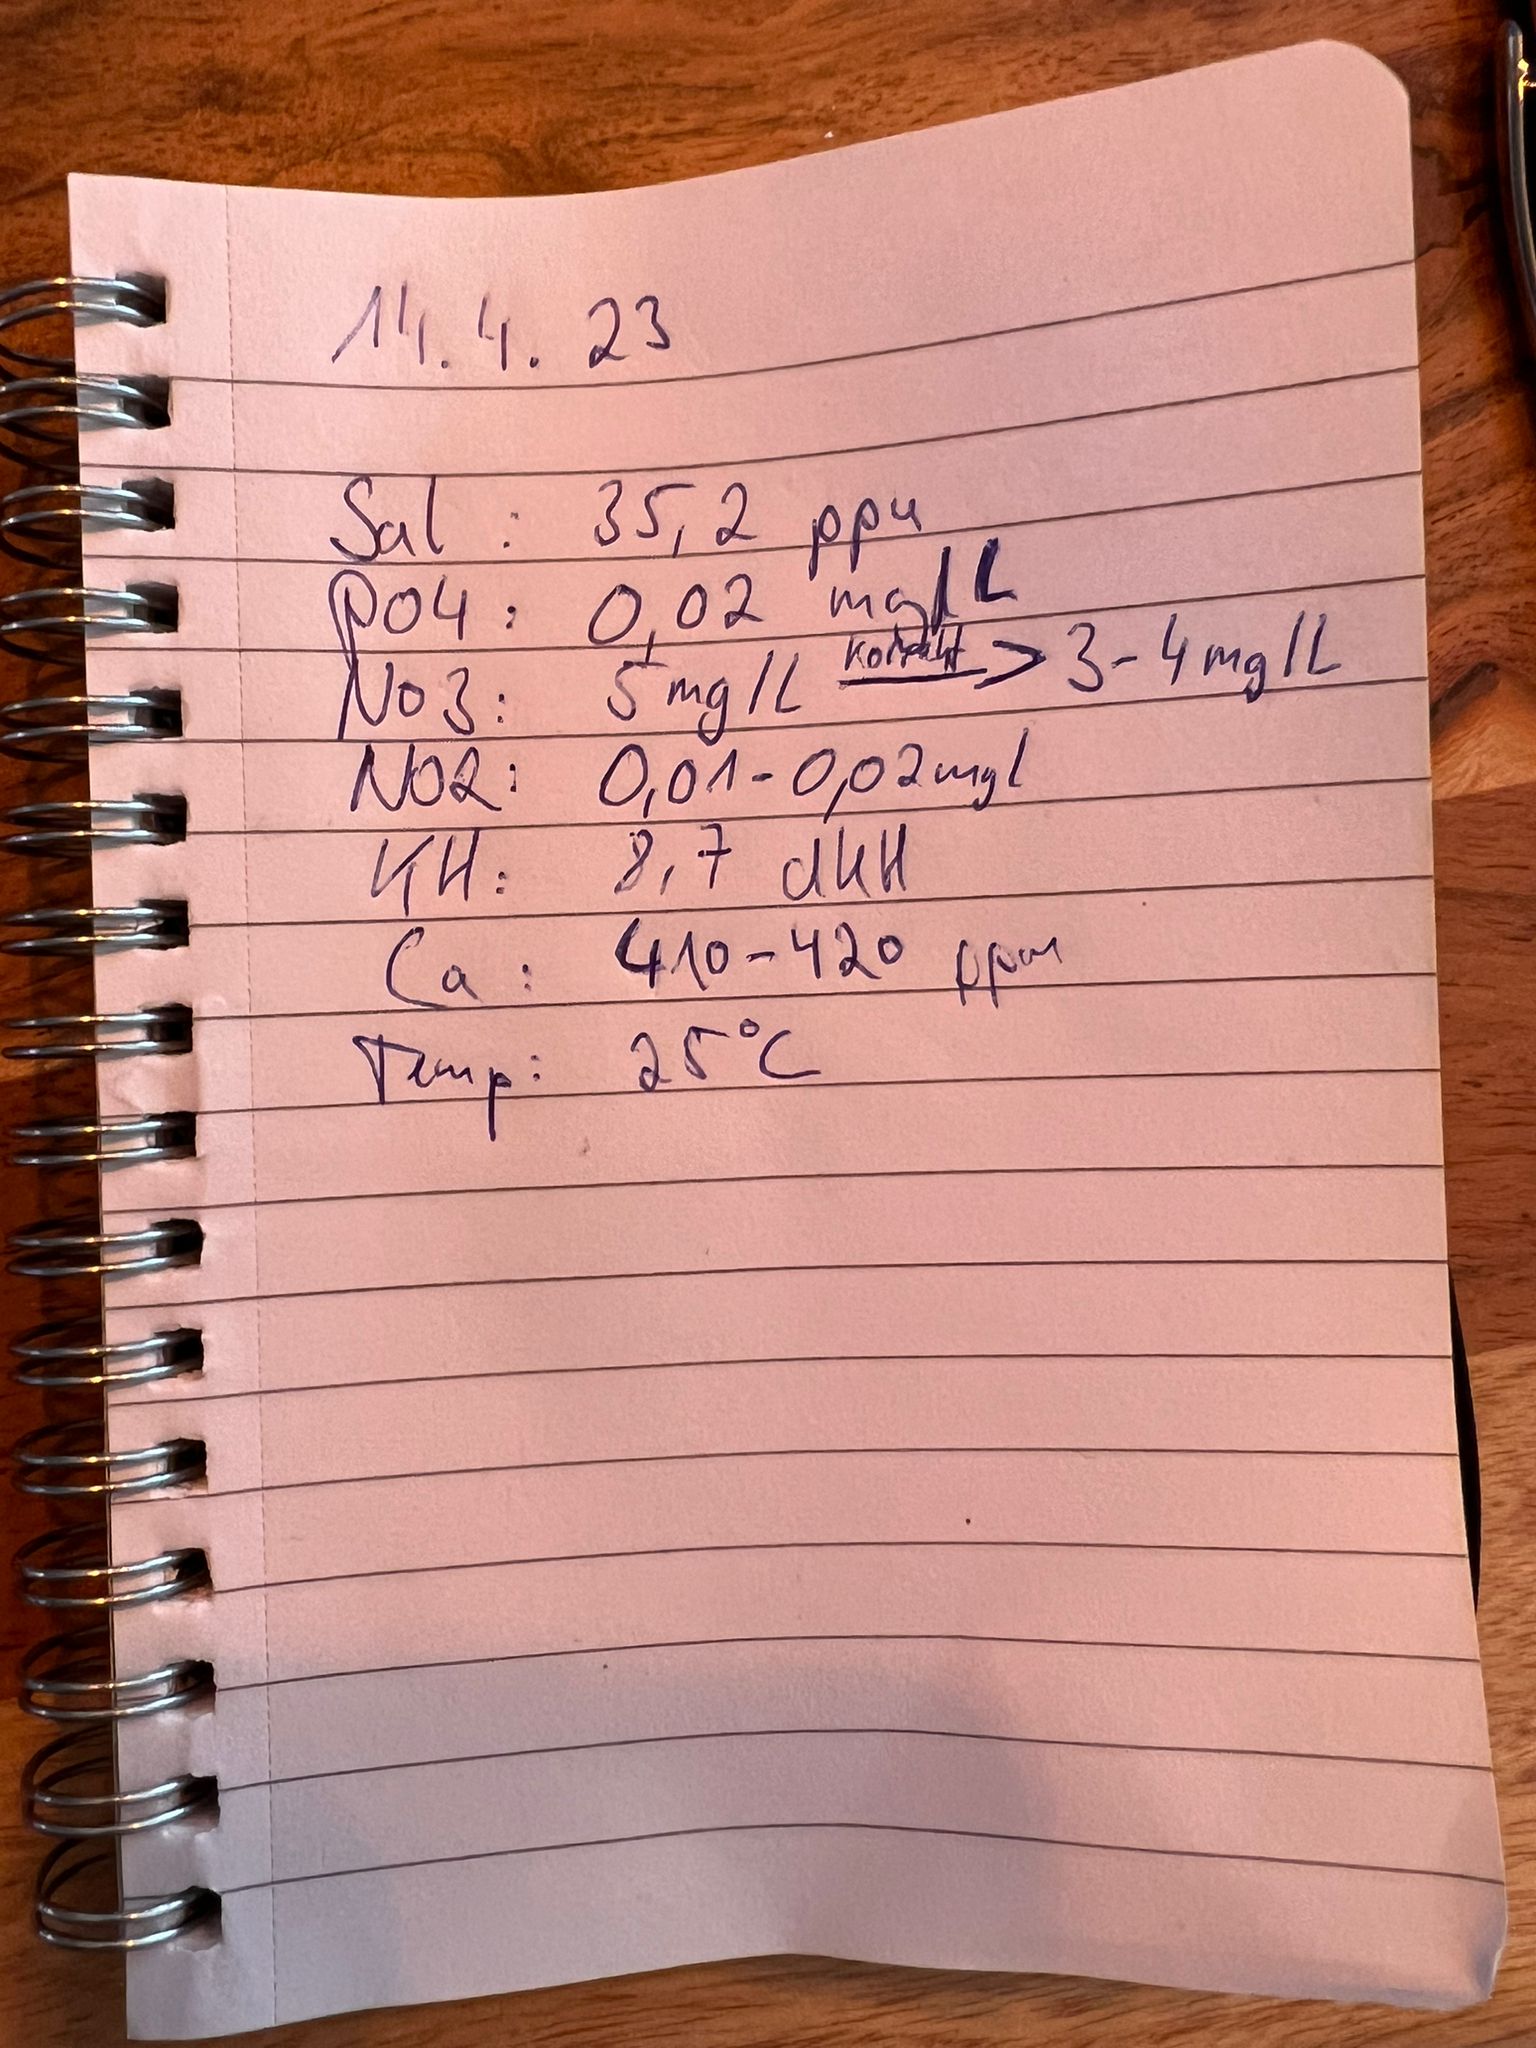 14.4.23
Sal: 35,2 ppm
PO4: 0,02 mg/L
NO3: 5mg/L korrekt > 3-4mg/L
NO2: 0,01-0,02mgl
KH: 8,7 dKH
Ca: 410-420 ppm
Temp: 25°C